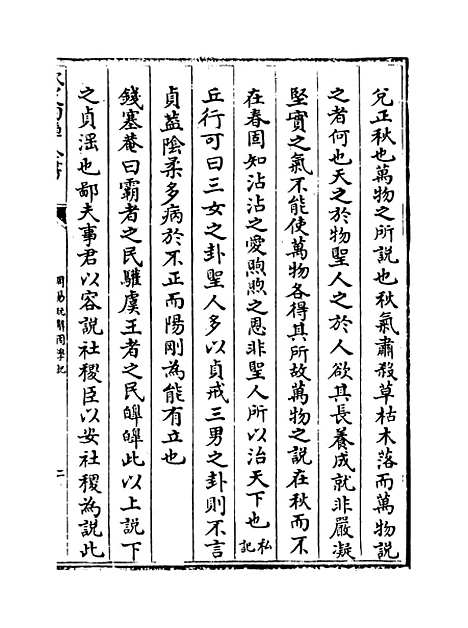 兌正秋也萬物之所說也秋氣肅殺草枯木落而萬物說
之者何也天之於物聖人之於人欲其長養成就非嚴凝
堅實之氣不能使萬物各得其所故萬物之說在秋而不
在春固知沾沾之愛煦煦之恩非聖人所以治天下也私記
丘行可曰三女之卦聖人多以貞戒三男之卦則不言
貞葢陰柔多病於不正而陽剛為能有立也
錢塞菴曰霸者之民驩虞王者之民皥皥此以上說下
之貞滛也鄙夫事君以容說社稷臣以安社稷為說此
周易玩辭困學記
二